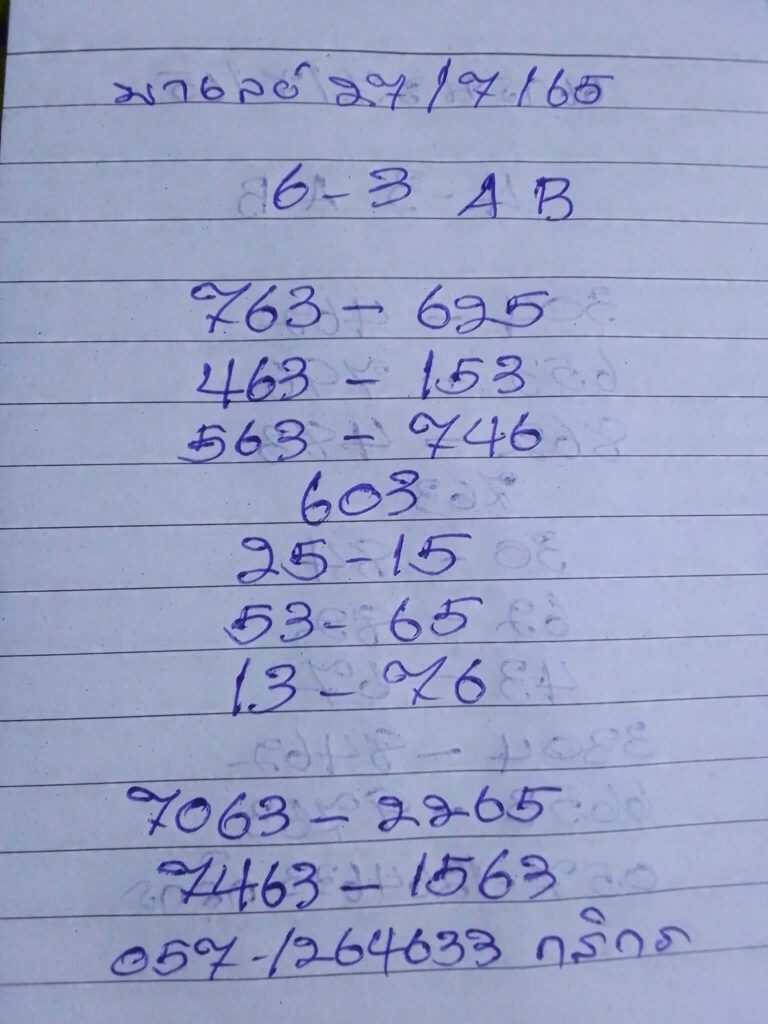 มาเลย์ 27/7/65
6-3 AB
763 - 625
463 - 153
563 - 746
603
25-15
53- 65
13-76
7063-2265
7463-1563
057-1264633